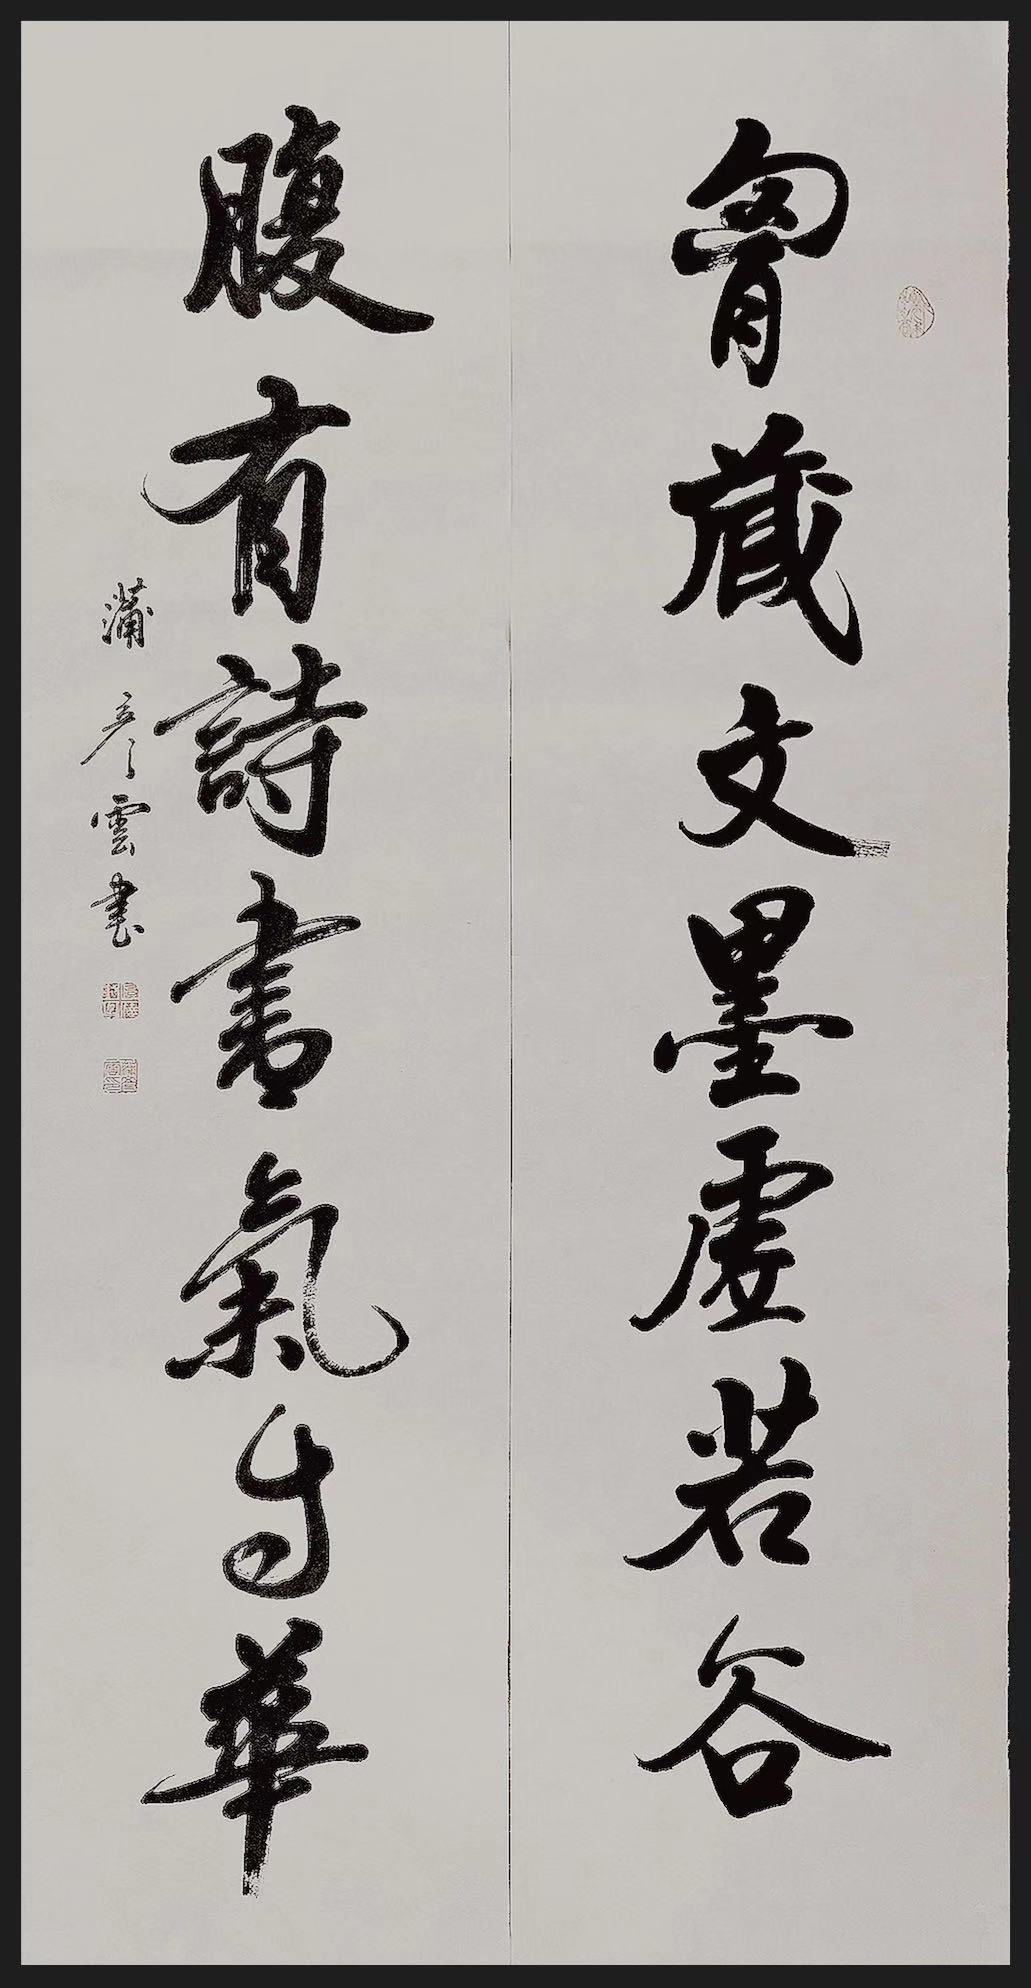 胷藏文墨虛若谷
腹有詩書氣自華
蒲彥雲書